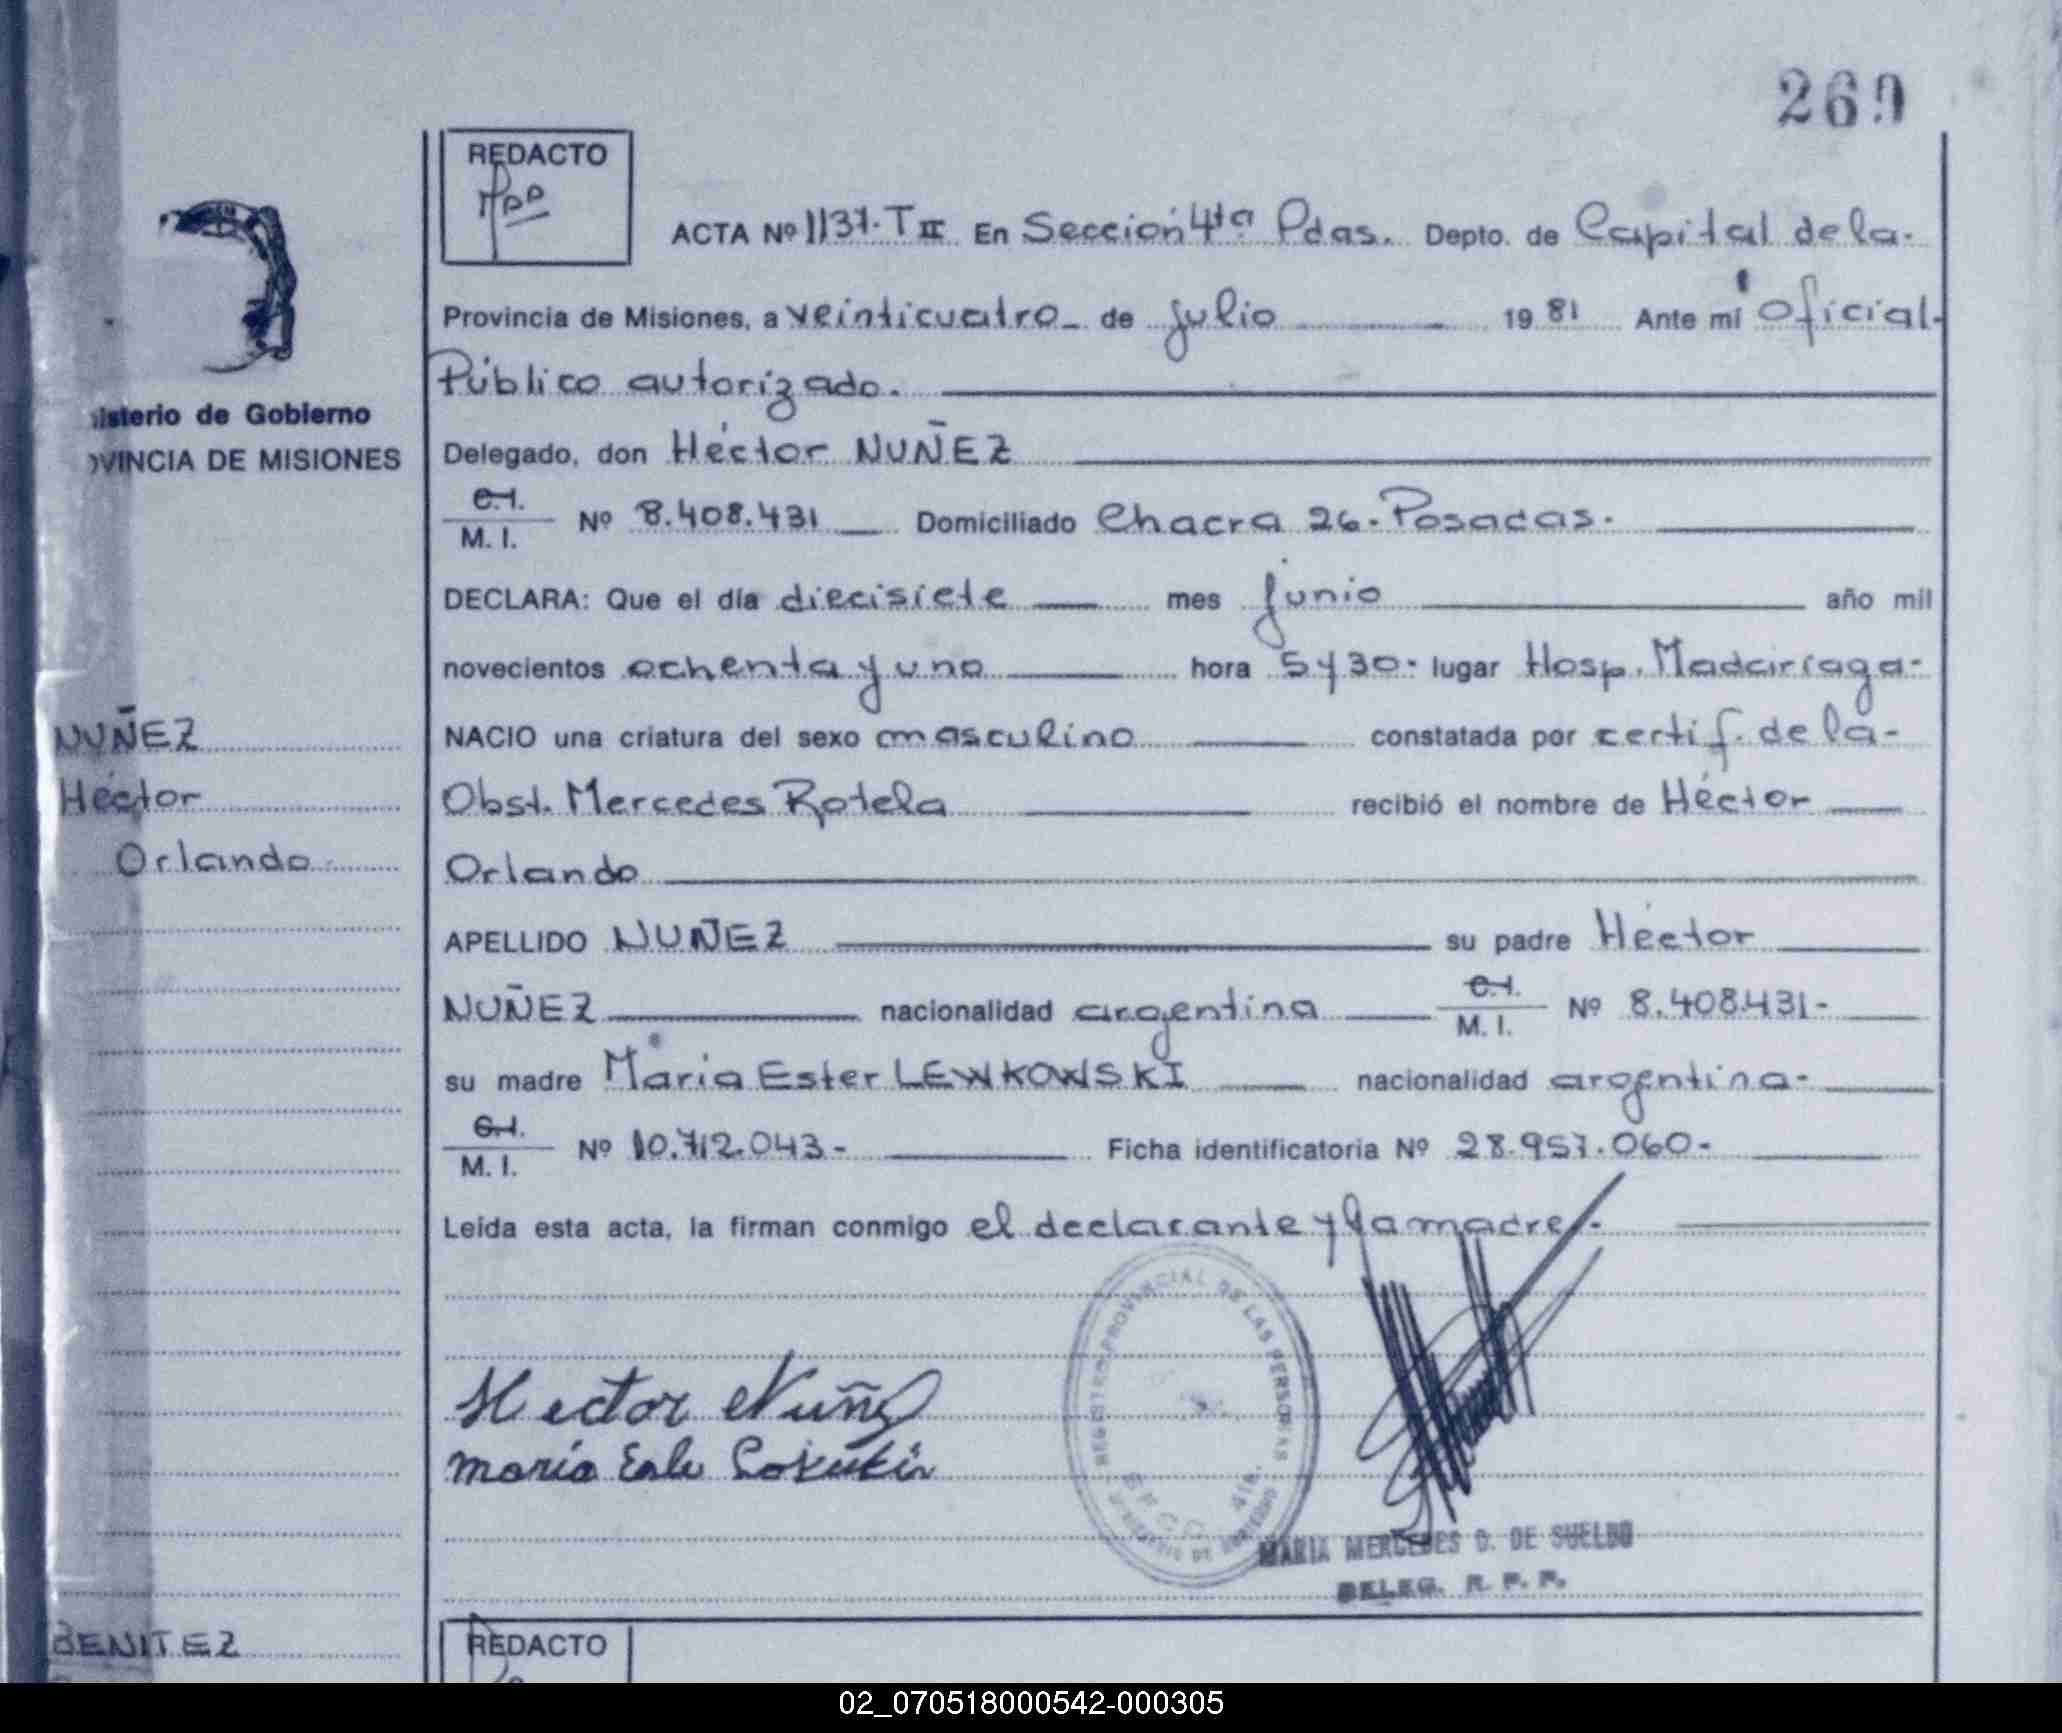 269
REDACTO
ACTA Nº 1137. T II En Sección 4ta Pdas. Depto. de Capital de la-
Provincia de Misiones, a veinticuatro de julio 1981 Ante mí Oficial-
Público autorizado.
isterio de Gobierno
OVINCIA DE MISIONES
Delegado, don Héctor NUÑEZ
C.I.
M. I. Nº 8.408.431 Domiciliado Chacra 26. Posadas.
DECLARA: Que el día diecisiete mes junio año mil
novecientos ochenta y uno hora 5 y 30. lugar Hosp. Madariaga-
NUÑEZ
NACIO una criatura del sexo masculino constatada por certif. de la-
Héctor
Obst. Mercedes Rotela recibió el nombre de Héctor
Orlando
Orlando
APELLIDO NUÑEZ su padre Héctor
NUÑEZ nacionalidad argentina C.I. M. I. Nº 8.408.431-
su madre María Ester LEWKOWSKI nacionalidad argentina-
C.I.
M. I. Nº 10.712.043- Ficha identificatoria Nº 28.957.060-
Leída esta acta, la firman conmigo el declarante y la madre.-
REGISTRO PROVINCIAL DE LAS PERSONAS
4ta.
Hector Nuñez
MARIA MERCEDES D. DE SUELDO
DELEG. R. P. P.
BENITEZ
REDACTO
02_070518000542-000305